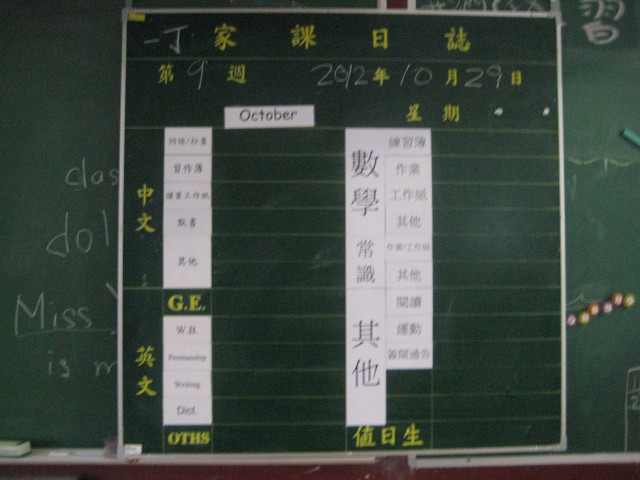 一丁 家課日誌
第9週 2012年10月29日
October 星期
中文
詞語/抄書
習作簿
課業工作紙
默書
其他
G.E.
英文
W.B.
Penmanship
Writing
Dict.
OTHS
數學
練習簿
作業
工作紙
其他
常識
作業/工作紙
其他
其他
閱讀
運動
簽閱通告
值日生
習
clas
dol
Miss
is m